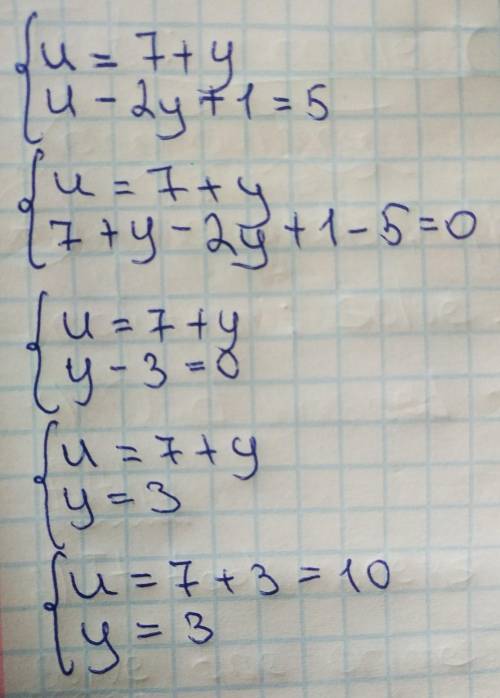 u = 7 + y
u - 2y + 1 = 5
u = 7 + y
7 + y - 2y + 1 - 5 = 0
u = 7 + y
y - 3 = 0
u = 7 + y
y = 3
u = 7 + 3 = 10
y = 3